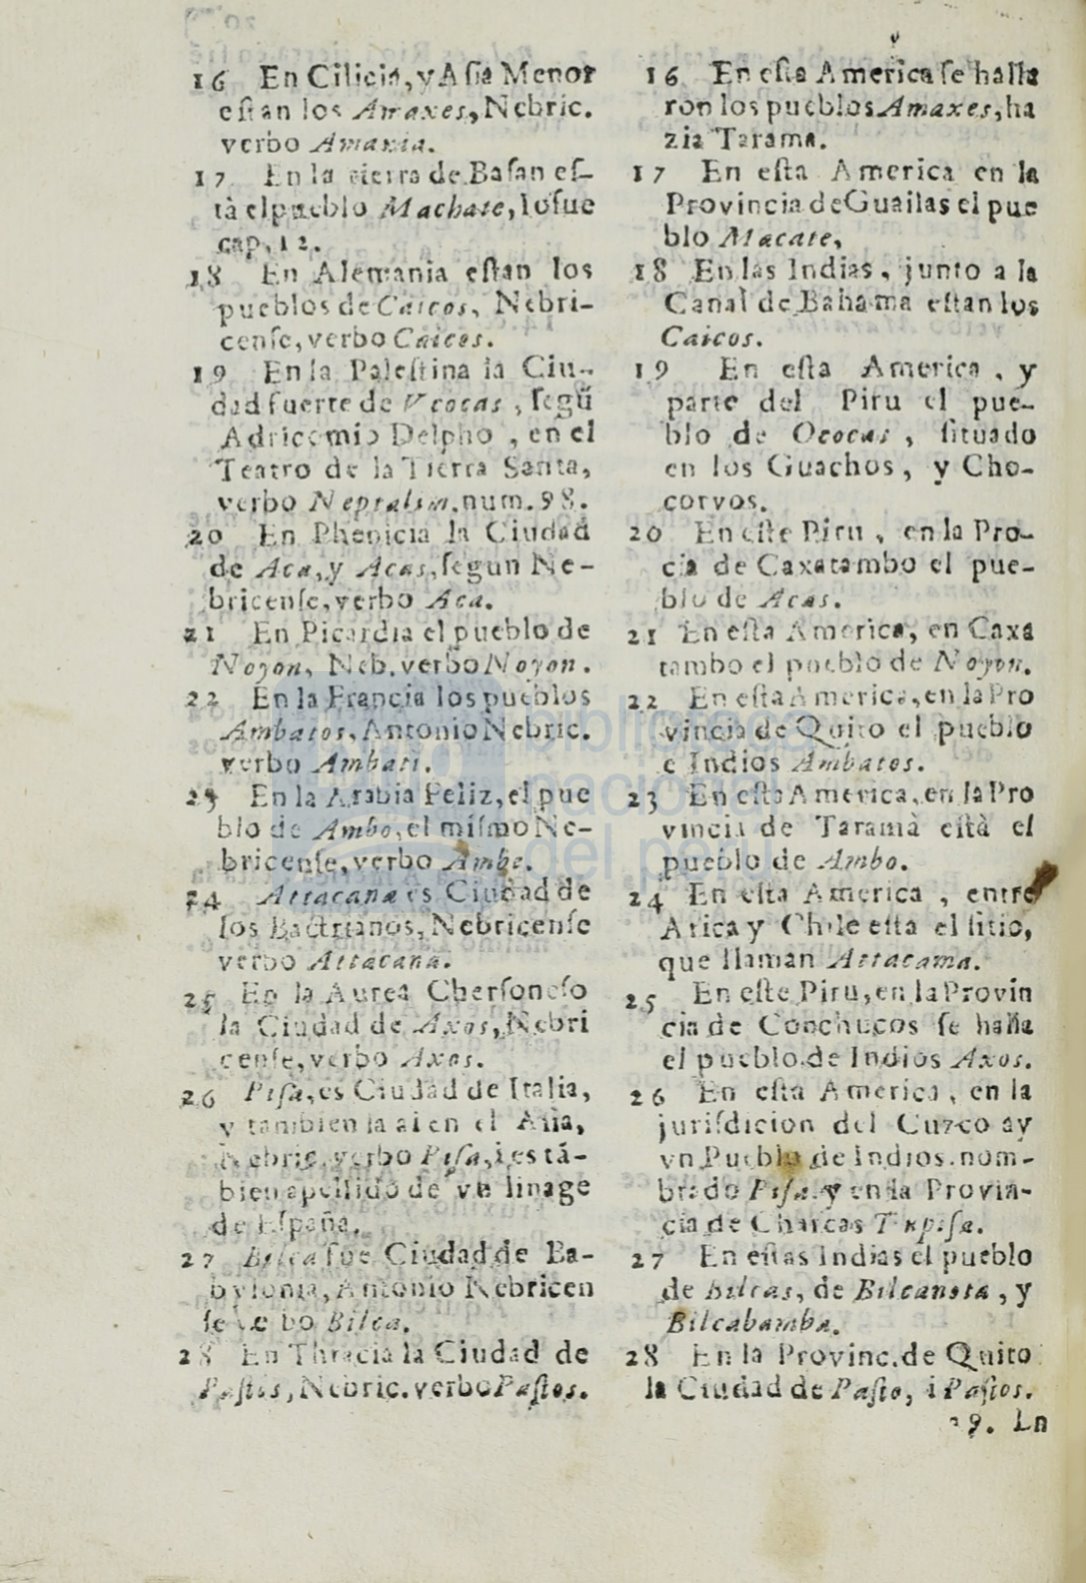 16 En Cilicia, y Aſia Menor
eſtan los Amaxes, Nebric.
verbo Amaxia.
17 En la tierra de Baſan eſ-
tà el pueblo Machate, Ioſue
cap, 12.
18 En Alemania eſtan los
pueblos de Caicos, Nebri-
cenſe, verbo Caicos.
19 En la Paleſtina la Ciu-
dad fuerte de Vcocas, ſegũ
Adricomio Delpho, en el
Teatro de la Tierra Santa,
verbo Neptalim. num. 98.
20 En Phenicia la Ciudad
de Aca, y Acas, ſegun Ne-
bricenſe, verbo Aca.
21 En Picardia el pueblo de
Noyon, Neb. verbo Noyon.
22 En la Francia los pueblos
Ambatos, Antonio Nebric.
verbo Ambati.
23 En la Arabia Feliz, el pue
blo de Ambo, el miſmo Ne-
bricenſe, verbo Ambe.
24 Attacana es Ciudad de
los Bactrianos, Nebricenſe
verbo Attacana.
25 En la Aurea Cherſoneſo
la Ciudad de Axos, Nebri
cenſe, verbo Axos.
26 Piſa, es Ciudad de Italia,
y tambien la ai en el Aſia,
Nebric. verbo Piſa, i es tá-
bien apellido de vn linage
de Eſpaña.
27 Bilca fue Ciudad de Ba-
bylonia, Antonio Nebricen
ſe ve bo Bilca.
28 En Thracia la Ciudad de
Paſtos, Nebric. verbo Paſtos.
16 En eſta America ſe halla
ron los pueblos Amaxes, ha
zia Tarama.
17 En eſta America en la
Provincia de Guailas el pue
blo Macate,
18 En las Indias, junto a la
Canal de Bahama eſtan los
Caicos.
19 En eſta America, y
parte del Piru el pue-
blo de Ococas, ſituado
en los Guachos, y Cho-
corvos.
20 En eſte Piru, en la Pro-
cia de Caxatambo el pue-
blo de Acas.
21 En eſta America, en Caxa
tambo el pueblo de Noyon.
22 En eſta America, en la Pro
vincia de Quito el pueblo
e Indios Ambatos.
23 En eſta America, en la Pro
vincia de Taramà eſtà el
pueblo de Ambo.
24 En eſta America, entre
Arica y Chile eſta el ſitio,
que llaman Attacama.
25 En eſte Piru, en la Provin
cia de Conchucos ſe halla
el pueblo de Indios Axos.
26 En eſta America, en la
juriſdicion del Cuzco ay
vn Pueblo de Indios. nom-
brado Piſa. y en la Provin-
cia de Charcas Tupiſa.
27 En eſtas Indias el pueblo
de Bilcas, de Bilcanota, y
Bilcabamba.
28 En la Provinc. de Quito
la Ciudad de Paſto, i Paſtos.
29. En
biblioteca
nacional
del perú